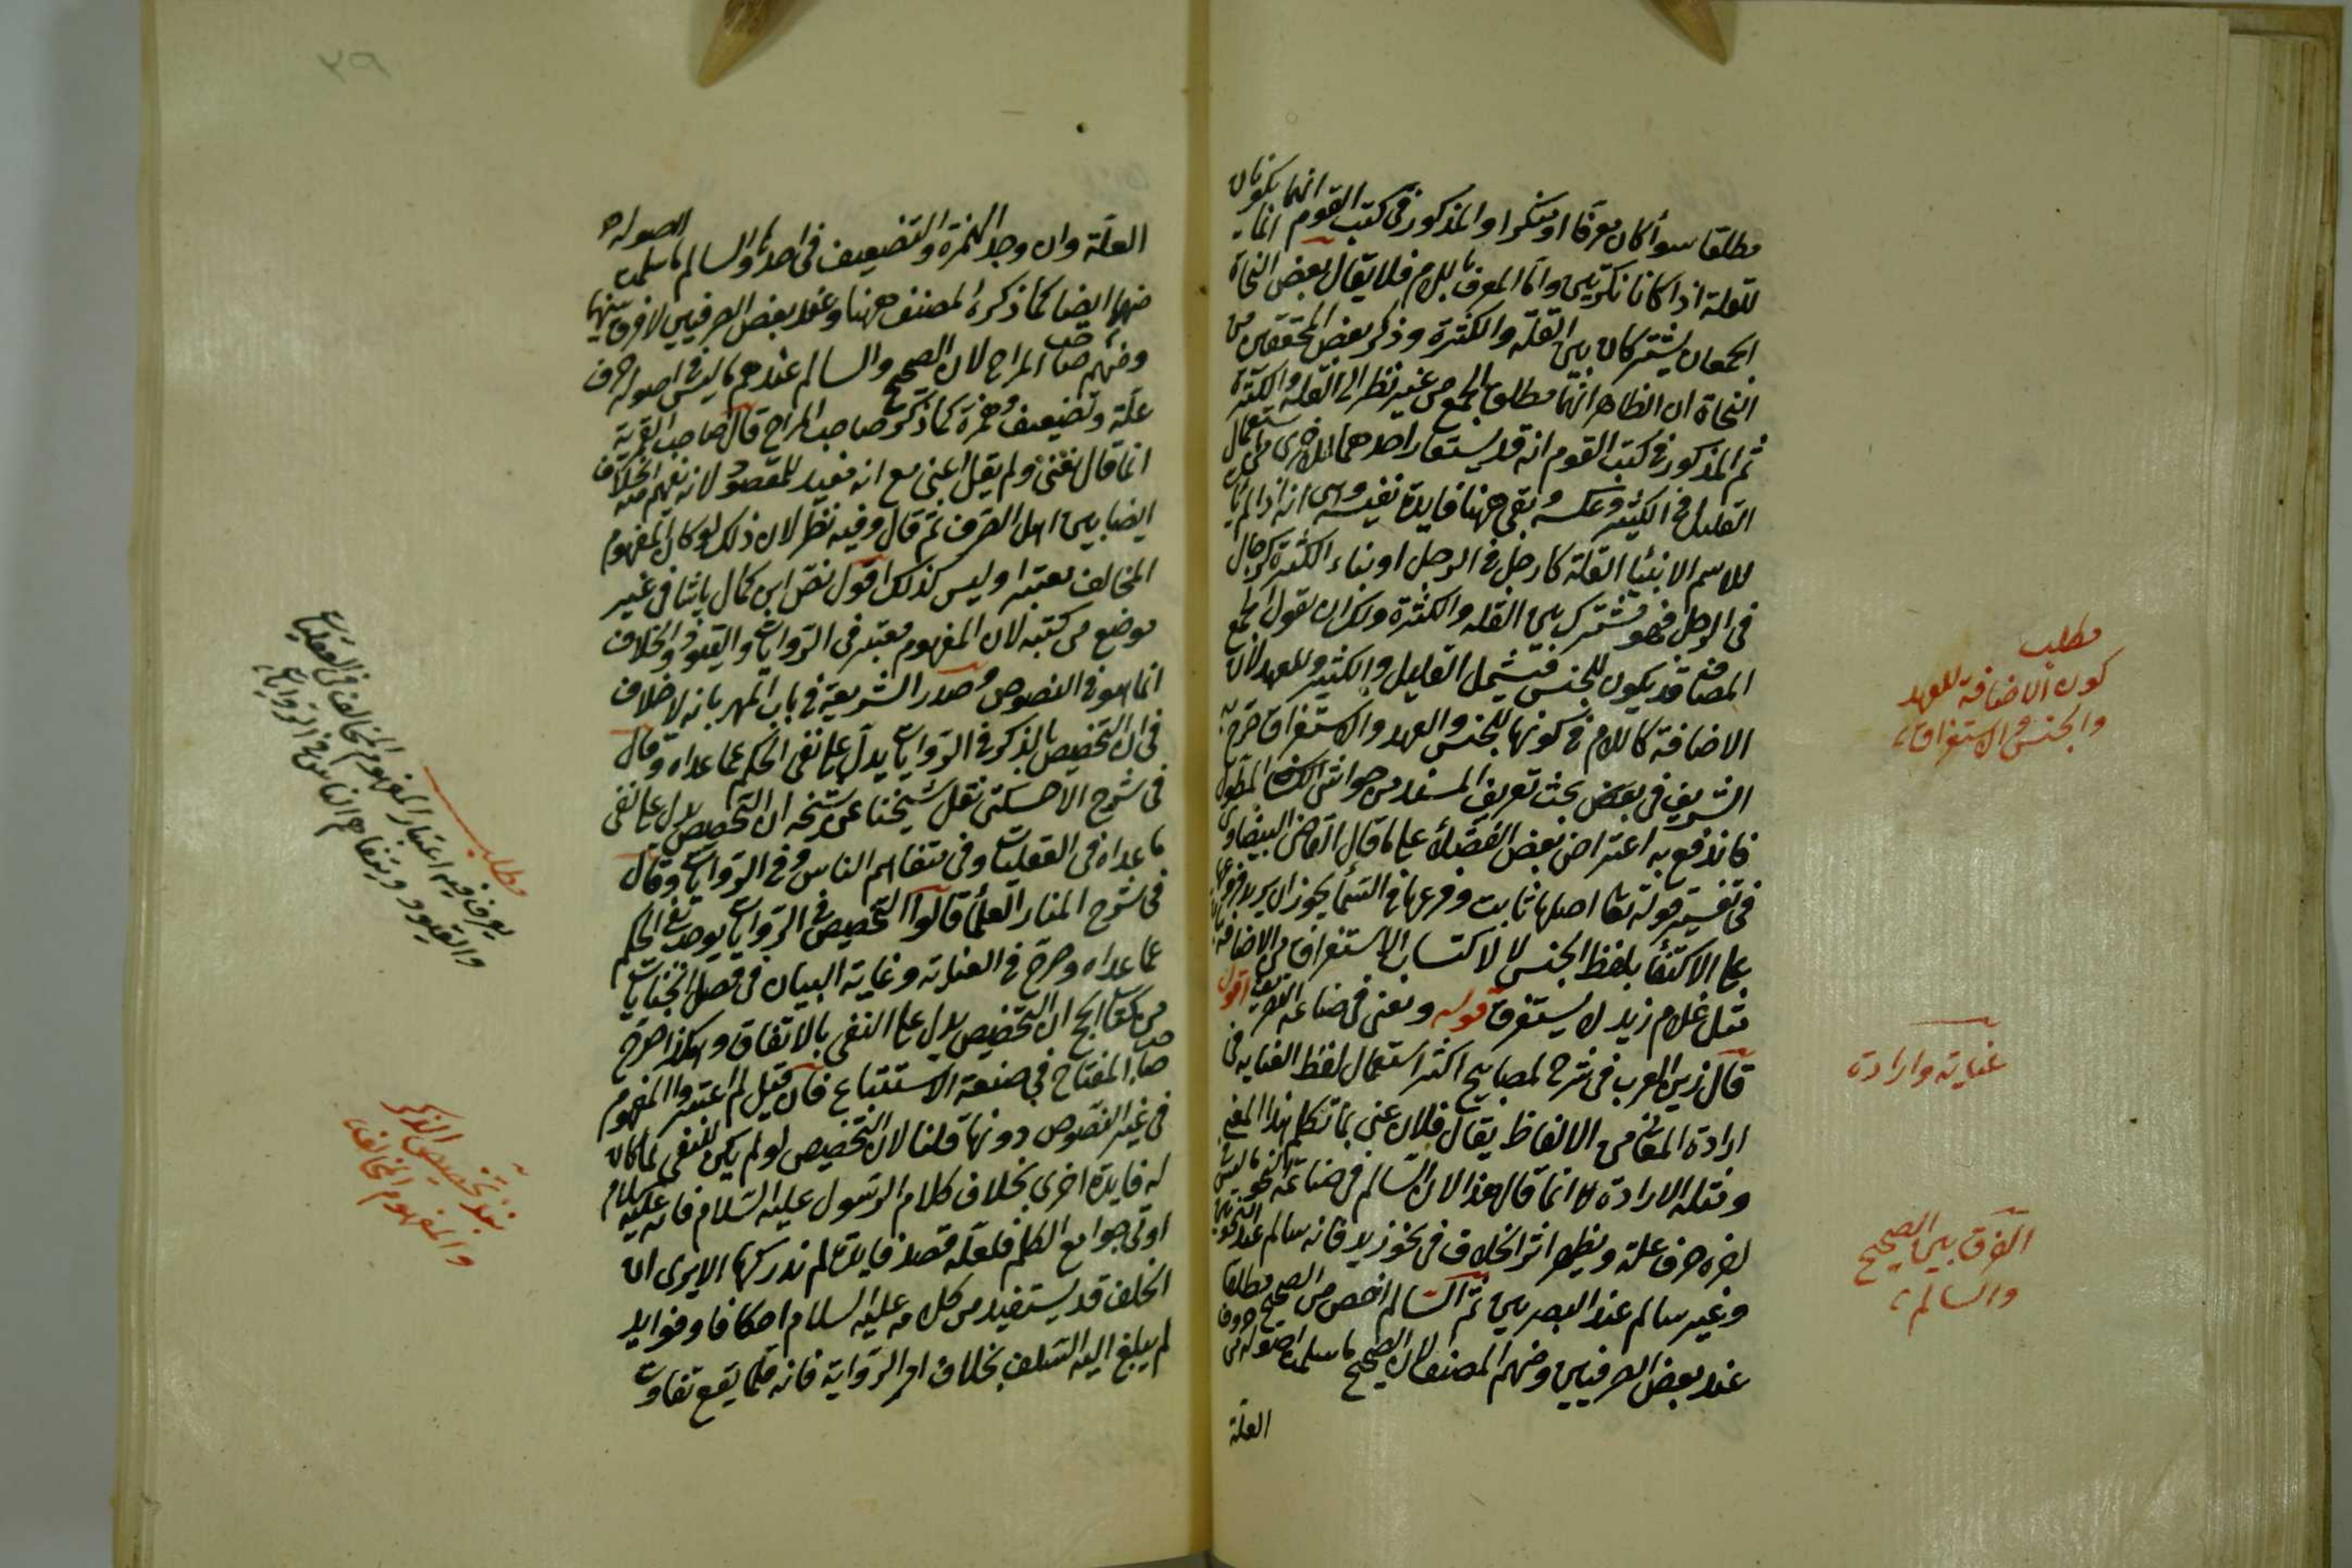 مطلقا سوأ كان معرفا او منكرا والمذكور فى كتب القوم انما انهما يكونان
للقلة اذا كانا نكرتين واما المعرف باللام فلا يقال بعض النحاة
الجمعان يشتركان بين القلة والكثرة وذكر بعض المحققين من
النحاة ان الظاهر انهما مطلق الجمع من غير نظر الى القلة والكثرة
ثم المذكور فى كتب القوم انه قد يستعار احدهما للاخرى استعمال
القليل فى الكثير وعكسه وبقى ههنا فايدة نفيسة وهى انه اذا لم يأت
للاسم الا بناء القلة كارجل فى الرجل او بناء الكثرة كرجال
فى الرجل فهو مشترك بين القلة والكثرة ولك ان تقول الجمع
المضاف قد يكون للجنس فيشمل القليل والكثير وللعهد لان
الاضافة كاللام فى كونها للجنس والعهد والاستغراق صرح به
الشريف فى بعض بحث تعريف المسند من حواشى المطول
فاندفع به اعتراض بعض الفضلاء على ما قال القاضى البيضاوى
فى تفسير قوله تعا اصلها ثابت وفرعها فى السماء يجوز ان يريد فروعها
على الاكتفا بلفظ الجنس لاكتساب الاستغراق من الاضافة
مثل غلام زيد لا يستغرق قوله ونعنى فى صناعة التصريف اقول
قال زين العرب فى شرح المصابيح اكثر استعمال لفظ العناية فى
ارادة المعانى من الالفاظ يقال فلان عنى بما تكلم هذا المعنى
ومثله الارادة انما قال هذا لان السالم فى صناعة النحو ما ليس فى
اخره حرف علة ويظهر اثر الخلاف فى نحو زيد فانه سالم عند النحويين
وغير سالم عند البصريين ثم السالم اخص من الصحيح مطلقا
عند بعض الصرفيين ومنهم المصنف لان الصحيح ما سلمت اصوله من حروف
العلة
مطلب
كون الاضافة للعهد
والجنس والاستغراق
عناية وارادة
الفرق بين الصحيح
والسالم
٢٩
العلة وان وجد الهمزة والتضعيف فى احدها والسالم ما سلمت اصوله
منهما ايضا كما ذكره المصنف ههنا وعند بعض الصرفيين لا فرق بينهما
ومنهم صاحب المراح لان الصحيح والسالم عندهم ما ليس فى اصوله حرف
علة وتضعيف وهمزة كما ذكره صاحب المراح قال صاحب القرية
انما قال نعنى ولم يقل اعنى مع انه مفيد للمقصود لانه يفهم منه الخلاف
ايضا بين اهل الصرف ثم قال وفيه نظر لان ذلك لو كان المفهوم
المخالف معتبرا وليس كذلك اقول نص ابن كمال پاشا فى غير
موضع من كتبه لان المفهوم معتبر فى الروايات والقيود والخلاف
انما هو فى النصوص وصدر الشريعة فى باب المهر بانه لا خلاف
فى ان التخصيص بالذكر فى الروايات يدل على نفى الحكم عما عداه وقال
فى شرح الاخسكتى نقل شيخنا عن شيخه ان التخصيص يدل على نفى
ما عداه فى العقليات وفى متفاهم الناس وفى الروايات وقال
فى شرح المنار العلماء قالوا التخصيص فى الروايات يوجب نفى الحكم
عما عداه وصرح فى العناية وغاية البيان فى فصل الجنايات
من كتاب الحج ان التخصيص يدل على النفى بالاتفاق وهكذا صرح
صاحب المفتاح فى صنعة الاستتباع فان قيل لم اعتبروا المفهوم
فى غير النصوص دونها قلنا لان التخصيص لو لم يكن للنفى لما كان
له فايدة اخرى بخلاف كلام الرسول عليه السلام فانه عليه السلام
اوتى جوامع الكلم فلعله قصد فايدة لم ندركها الا يرى ان
الخلف قد يستفيد من كلامه عليه السلام احكاما وفوايد
لم يبلغ اليه السلف بخلاف امر الرواية فانه قلما يقع تفاوت
مطلب
يعرف فيه اعتبار المفهوم المخالف فى العقليات
والقيود ومتفاهم الناس فى الروايات
تخصيص الذكر
والمفهوم المخالف